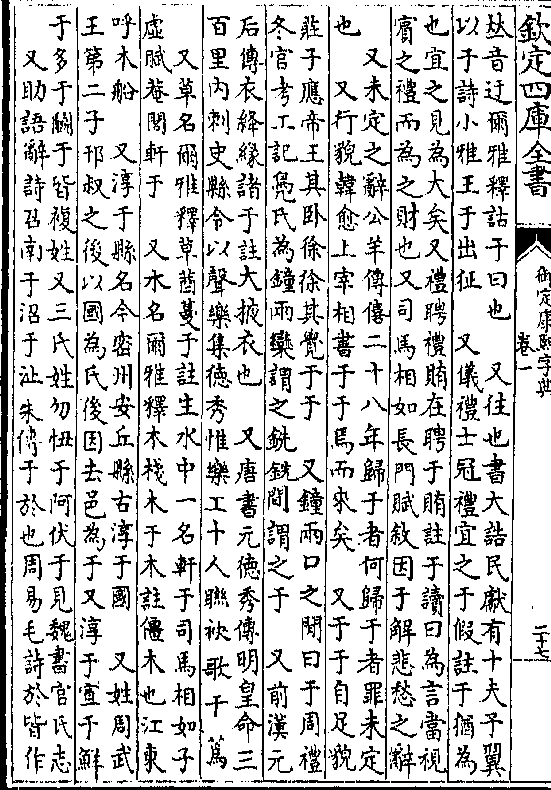 欽定四庫全書
御定康熙字典
卷一
二十七
夶音迂爾雅釋詁于曰也　又往也書大誥民獻有十夫予翼
以于詩小雅王于出征　又儀禮士冠禮宜之于假註于猶為
也宜之見為大矣又禮聘禮賄在聘于賄註于讀曰為言當視
賓之禮而為之財也又司馬相如長門賦敘因于解悲愁之辭
又未定之辭公羊傳僖二十八年歸于者何歸于者罪未定
也　又行貌韓愈上宰相書于于焉而來矣　又于于自足貌
莊子應帝王其卧徐徐其覺于于　又鐘兩口之閒曰于周禮
冬官考工記鳧氏為鐘兩欒謂之銑銑閒謂之于　又前漢元
后傳衣絳緣諸于註大掖衣也　又唐書元德秀傳明皇命三
百里內刺史縣令以聲樂集德秀惟樂工十人聯袂歌于蔿
又草名爾雅釋草茜蔓于註生水中一名軒于司馬相如子
虛賦菴閭軒于　又木名爾雅釋木棧木于木註僵木也江東
呼木船　又淳于縣名今密州安丘縣古淳于國　又姓周武
王第二子邘叔之後以國為氏後因去邑為于又淳于宣于鮮
于多于闞于皆複姓又三氏姓勿忸于阿伏于見魏書官氏志
又助語辭詩召南于沼于沚朱傳于於也周易毛詩於皆作